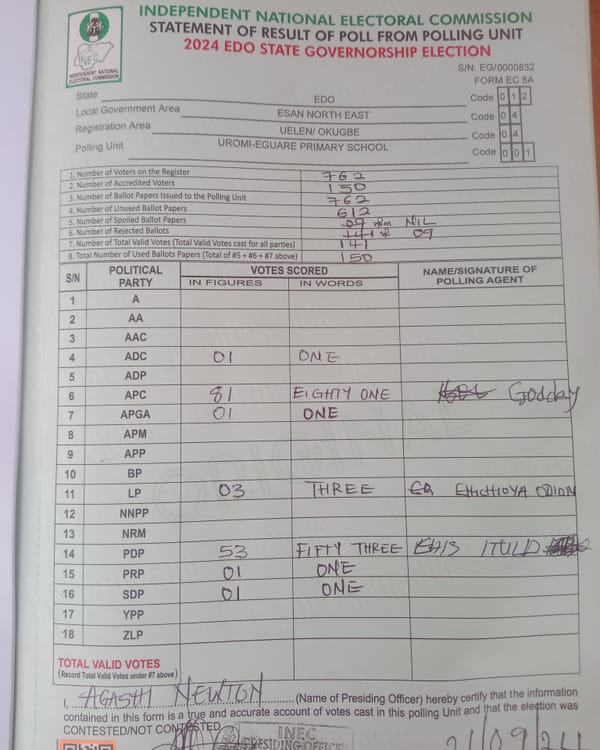 INDEPENDENT NATIONAL ELECTORAL COMMISSION
STATEMENT OF RESULT OF POLL FROM POLLING UNIT
2024 EDO STATE GOVERNORSHIP ELECTION
INEC
INDEPENDENT NATIONAL
ELECTORAL COMMISSION
S/N: EG/0000832
FORM EC 8A
State EDO Code 0 1 2
Local Government Area ESAN NORTH EAST Code 0 4
Registration Area UELEN/ OKUGBE Code 0 4
Polling Unit UROMI-EGUARE PRIMARY SCHOOL Code 0 0 1
1. Number of Voters on the Register 762
2. Number of Accredited Voters 150
3. Number of Ballot Papers Issued to the Polling Unit 762
4. Number of Unused Ballot Papers 612
5. Number of Spoiled Ballot Papers 09 NIL
6. Number of Rejected Ballots 141 09
7. Number of Total Valid Votes (Total Valid Votes cast for all parties) 141
8. Total Number of Used Ballots Papers (Total of #5 + #6 + #7 above) 150
S/N POLITICAL PARTY VOTES SCORED NAME/SIGNATURE OF POLLING AGENT
IN FIGURES IN WORDS
1 A
2 AA
3 AAC
4 ADC 01 ONE
5 ADP
6 APC 81 EIGHTY ONE Godday
7 APGA 01 ONE
8 APM
9 APP
10 BP
11 LP 03 THREE ODION
12 NNPP
13 NRM
14 PDP 53 FIFTY THREE
15 PRP 01 ONE
16 SDP 01 ONE
17 YPP
18 ZLP
ORIGINAL
TOTAL VALID VOTES
(Record Total Valid Votes under #7 above)
I, AGASHI NEWTON (Name of Presiding Officer) hereby certify that the information
contained in this form is a true and accurate account of votes cast in this polling Unit and that the election was
CONTESTED/NOT CONTESTED
INEC
PRESIDING OFFICER
21/09/24